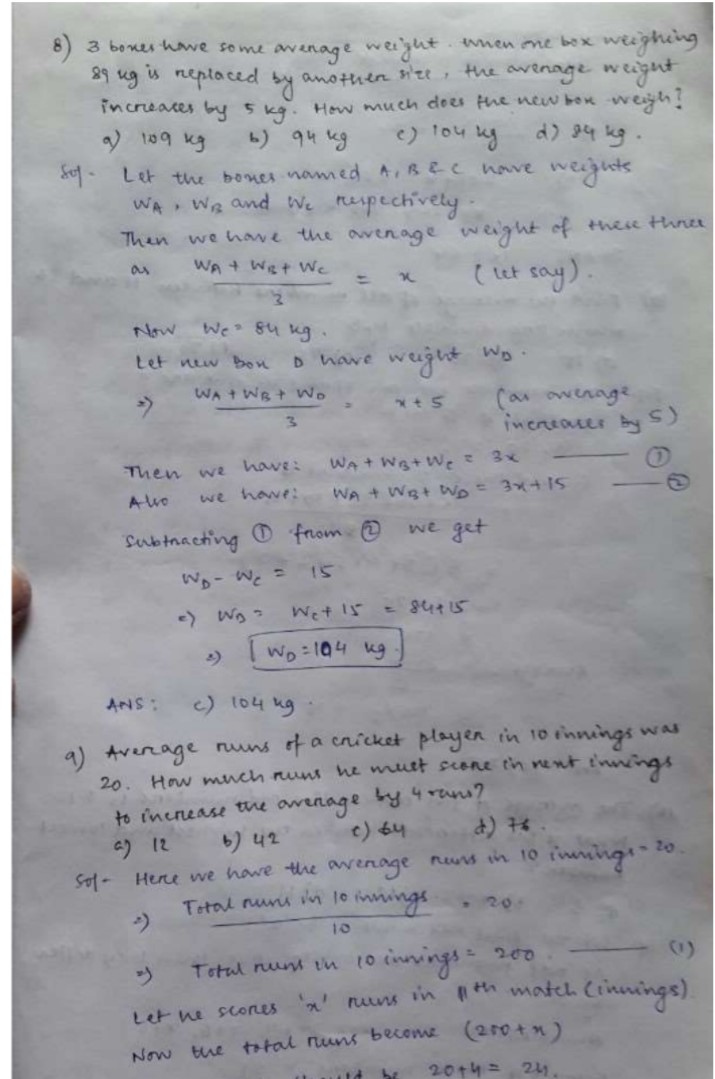 8) 3 boxes have some average weight. When one box weighing
89 kg is replaced by another size, the average weight
increases by 5 kg. How much does the new box weigh?
a) 109 kg b) 94 kg c) 104 kg d) 84 kg.
Sol- Let the boxes named A, B & C have weights
WA, WB and Wc respectively.
Then we have the average weight of these three
as WA + WB + Wc / 3 = x (let say).
Now Wc = 84 kg.
Let new box D have weight WD.
=> WA + WB + WD / 3 = x + 5 (as average
increases by 5)
Then we have: WA + WB + Wc = 3x —— ①
Also we have: WA + WB + WD = 3x + 15 —— ②
Subtracting ① from ② we get
WD - Wc = 15
=> WD = Wc + 15 = 84 + 15
=> WD = 104 kg.
ANS: c) 104 kg.
9) Average runs of a cricket player in 10 innings was
20. How much runs he must score in next innings
to increase the average by 4 runs?
a) 12 b) 42 c) 64 d) 76.
Sol- Here we have the average runs in 10 innings = 20.
=> Total runs in 10 innings / 10 = 20
=> Total runs in 10 innings = 200. —— (1)
Let he scores 'x' runs in 11th match (innings)
Now the total runs become (200 + x)
should be 20 + 4 = 24.